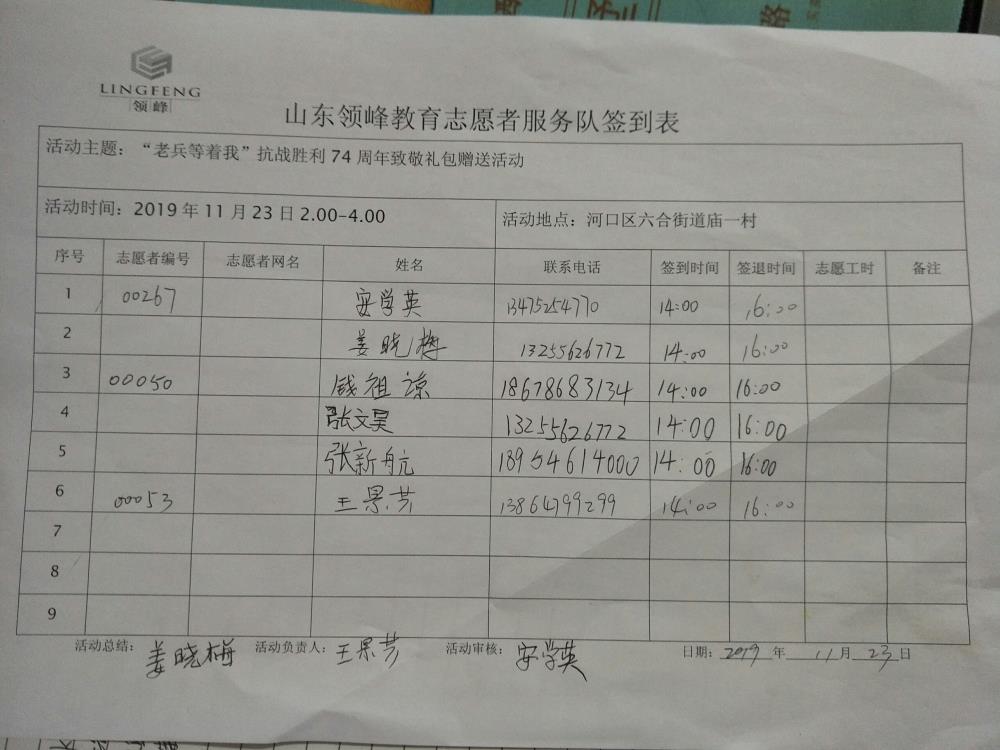 LINGFENG
领峰
山东领峰教育志愿者服务队签到表
活动主题：“老兵等着我”抗战胜利 74 周年致敬礼包赠送活动
活动时间：2019 年 11 月 23 日 2.00-4.00 活动地点：河口区六合街道庙一村
序号 志愿者编号 志愿者网名 姓名 联系电话 签到时间 签退时间 志愿工时 备注
1 00267 安学英 13475254770 14:00 16:00
2 姜晓梅 13255626772 14:00 16:00
3 00050 钱祖谅 18678683134 14:00 16:00
4 张文昊 13255626772 14:00 16:00
5 张新航 18954614000 14:00 16:00
6 00053 王景芳 13864799299 14:00 16:00
7
8
9
活动总结：姜晓梅 活动负责人：王景芳 活动审核：安学英 日期：2019 年 11 月 23 日